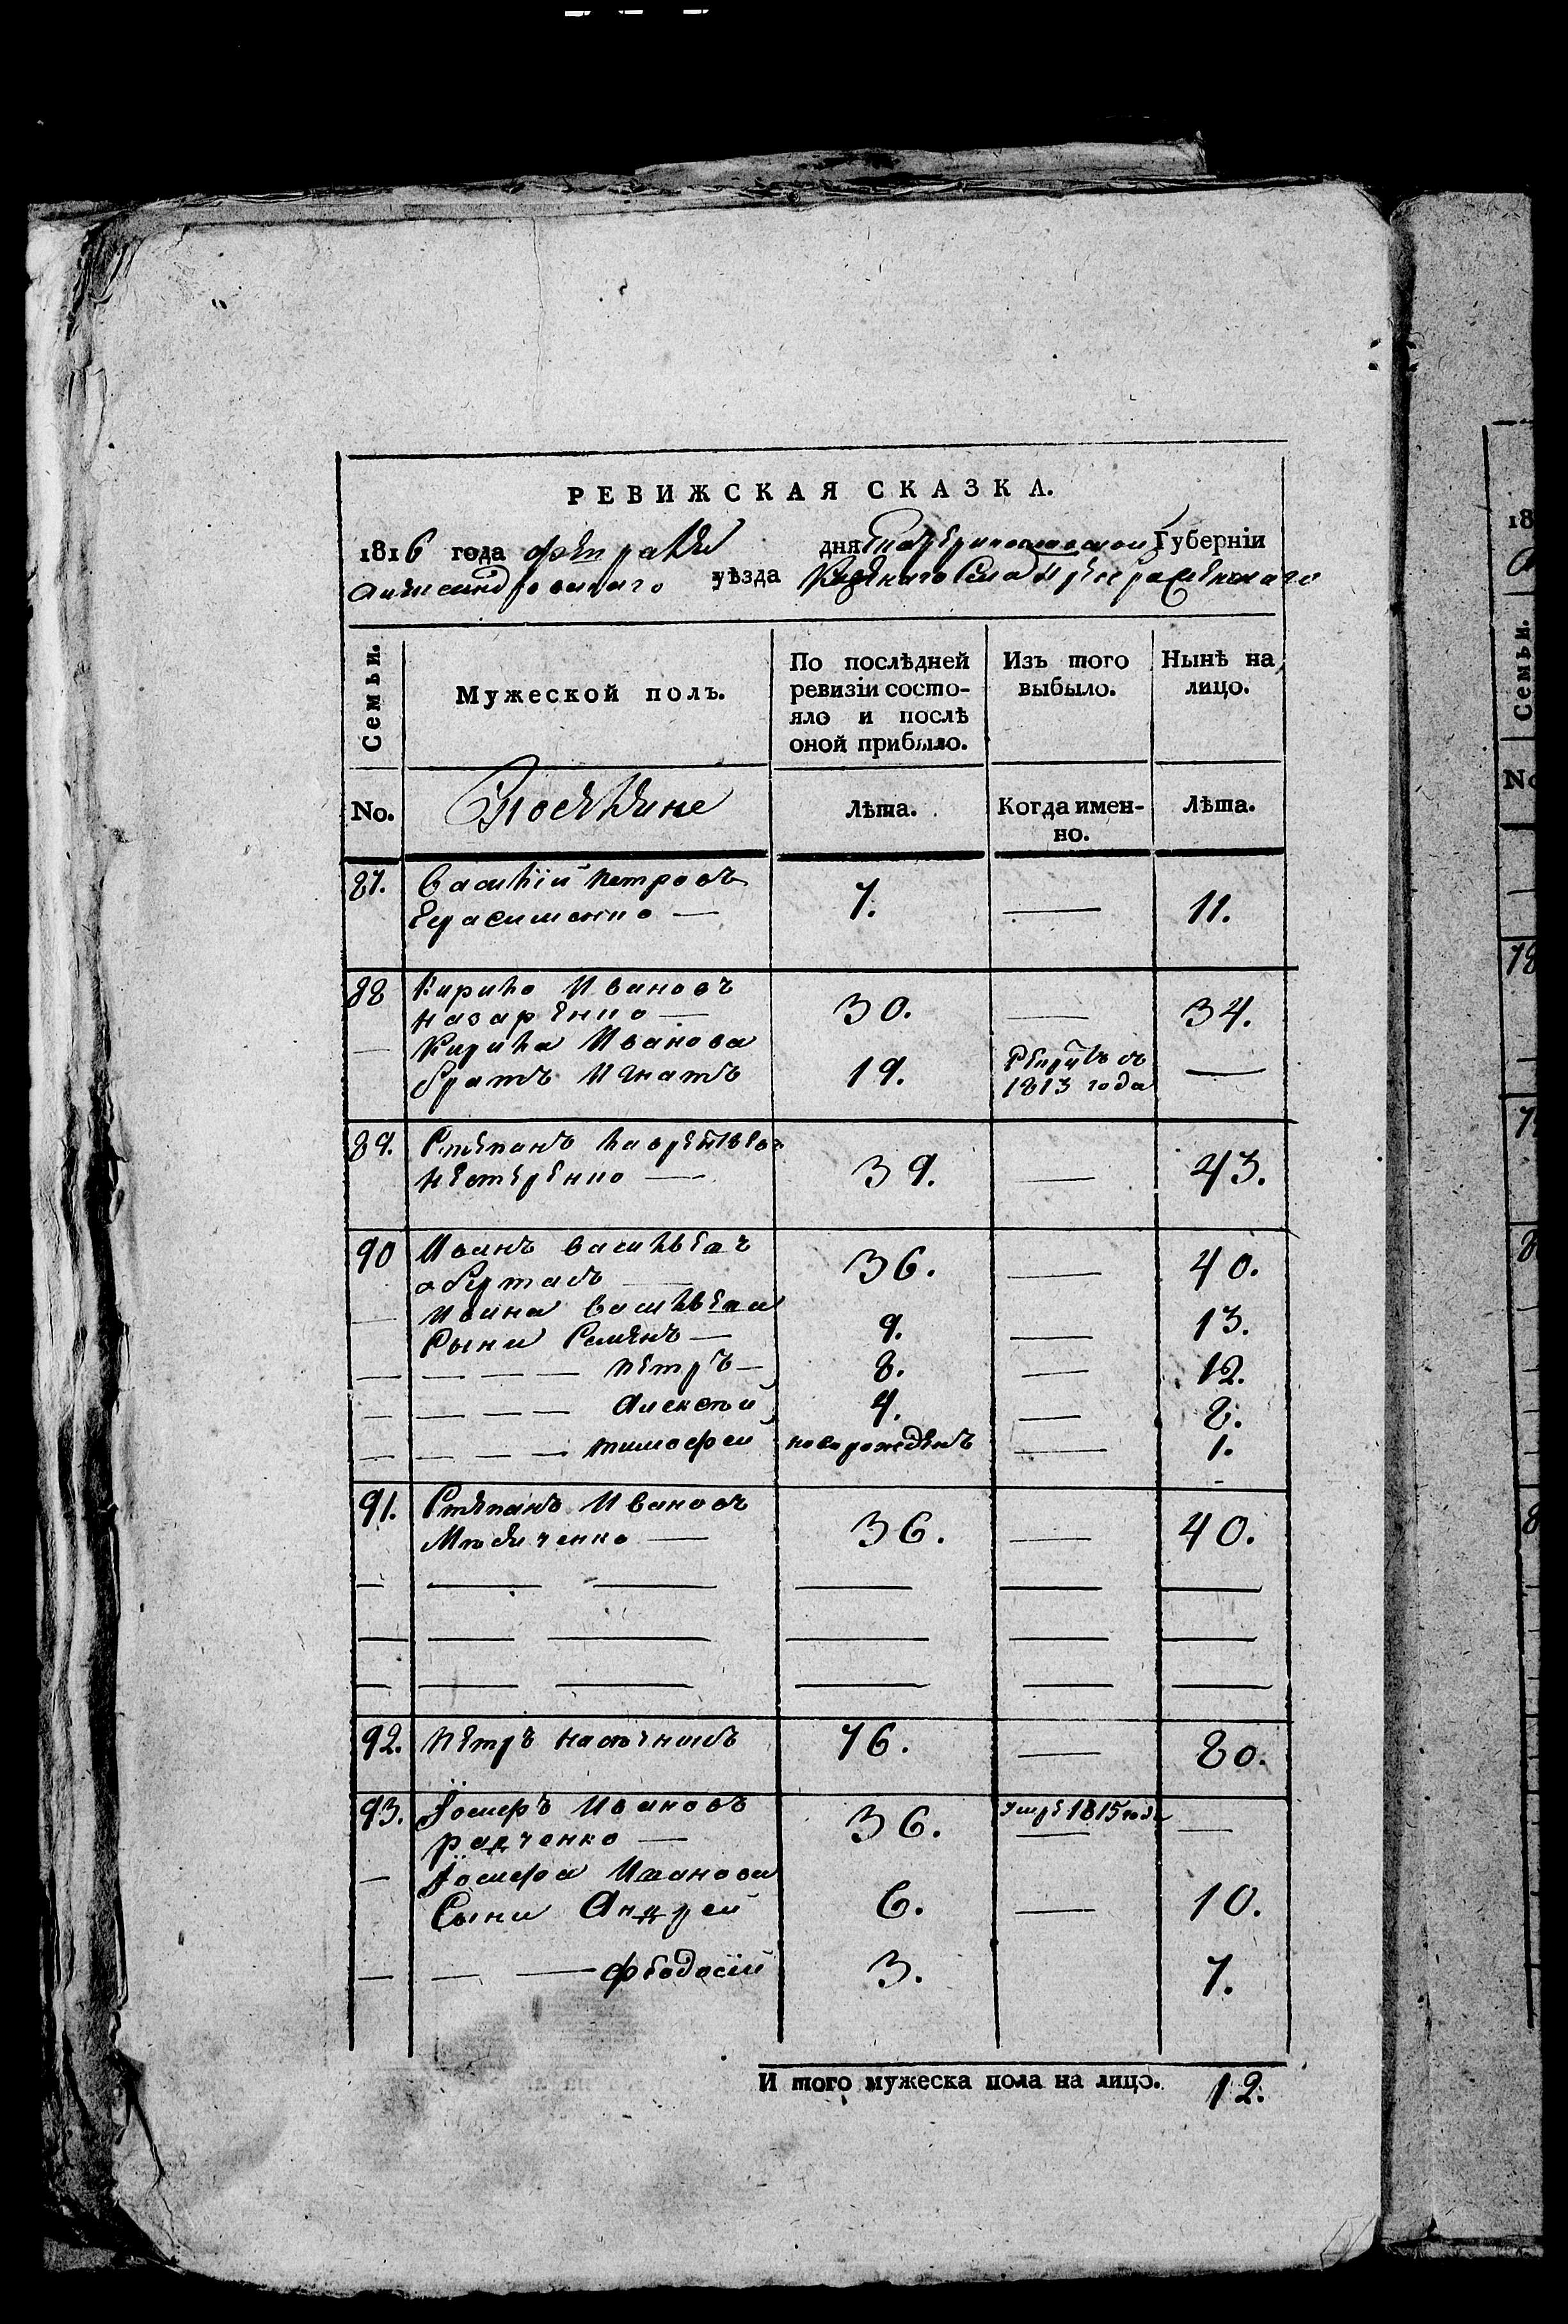 РЕВИЖСКАЯ СКАЗКА.
1816 года февраля дня Екатеринославской Губерніи
Александровскаго уѣзда Казеннаго Села Преображенскаго
Семьи.
Мужеской полъ.
По послѣдней ревизіи состо-
яло и послѣ
оной прибыло.
Изъ того
выбыло.
Нынѣ на
лицо.
No.
Поселяне
лѣта.
Когда имен-
но.
лѣта.
87. Василій Петровъ
Герасименко — 7. — 11.
88 Кирило Ивановъ
Назаренко — 30. — 34.
— Кирила Иванова
братъ Игнатъ 19. Рекрутъ съ 1813 года —
89. Степанъ Лаврентьевъ
Нестеренко — 39. — 43.
90 Иванъ Васильевъ
— 36. — 40.
— Ивана Васильева
Сыни Семенъ — 9. — 13.
— — — — Петръ — 8. — 12.
— — — — Алексѣй 4. — 8.
— — — — Тимофей новорожденъ — 1.
91. Степанъ Ивановъ
— 36. — 40.
92. Петръ 76. — 80.
93. Іосифъ Ивановъ
Радченко — 36. Умре 1815 года —
— Іосифа Иванова
Сыни Андрей 6. — 10.
— — — Феодосій 3. 7.
И того мужеска пола на лицо. 12.
18
Семьи.
No